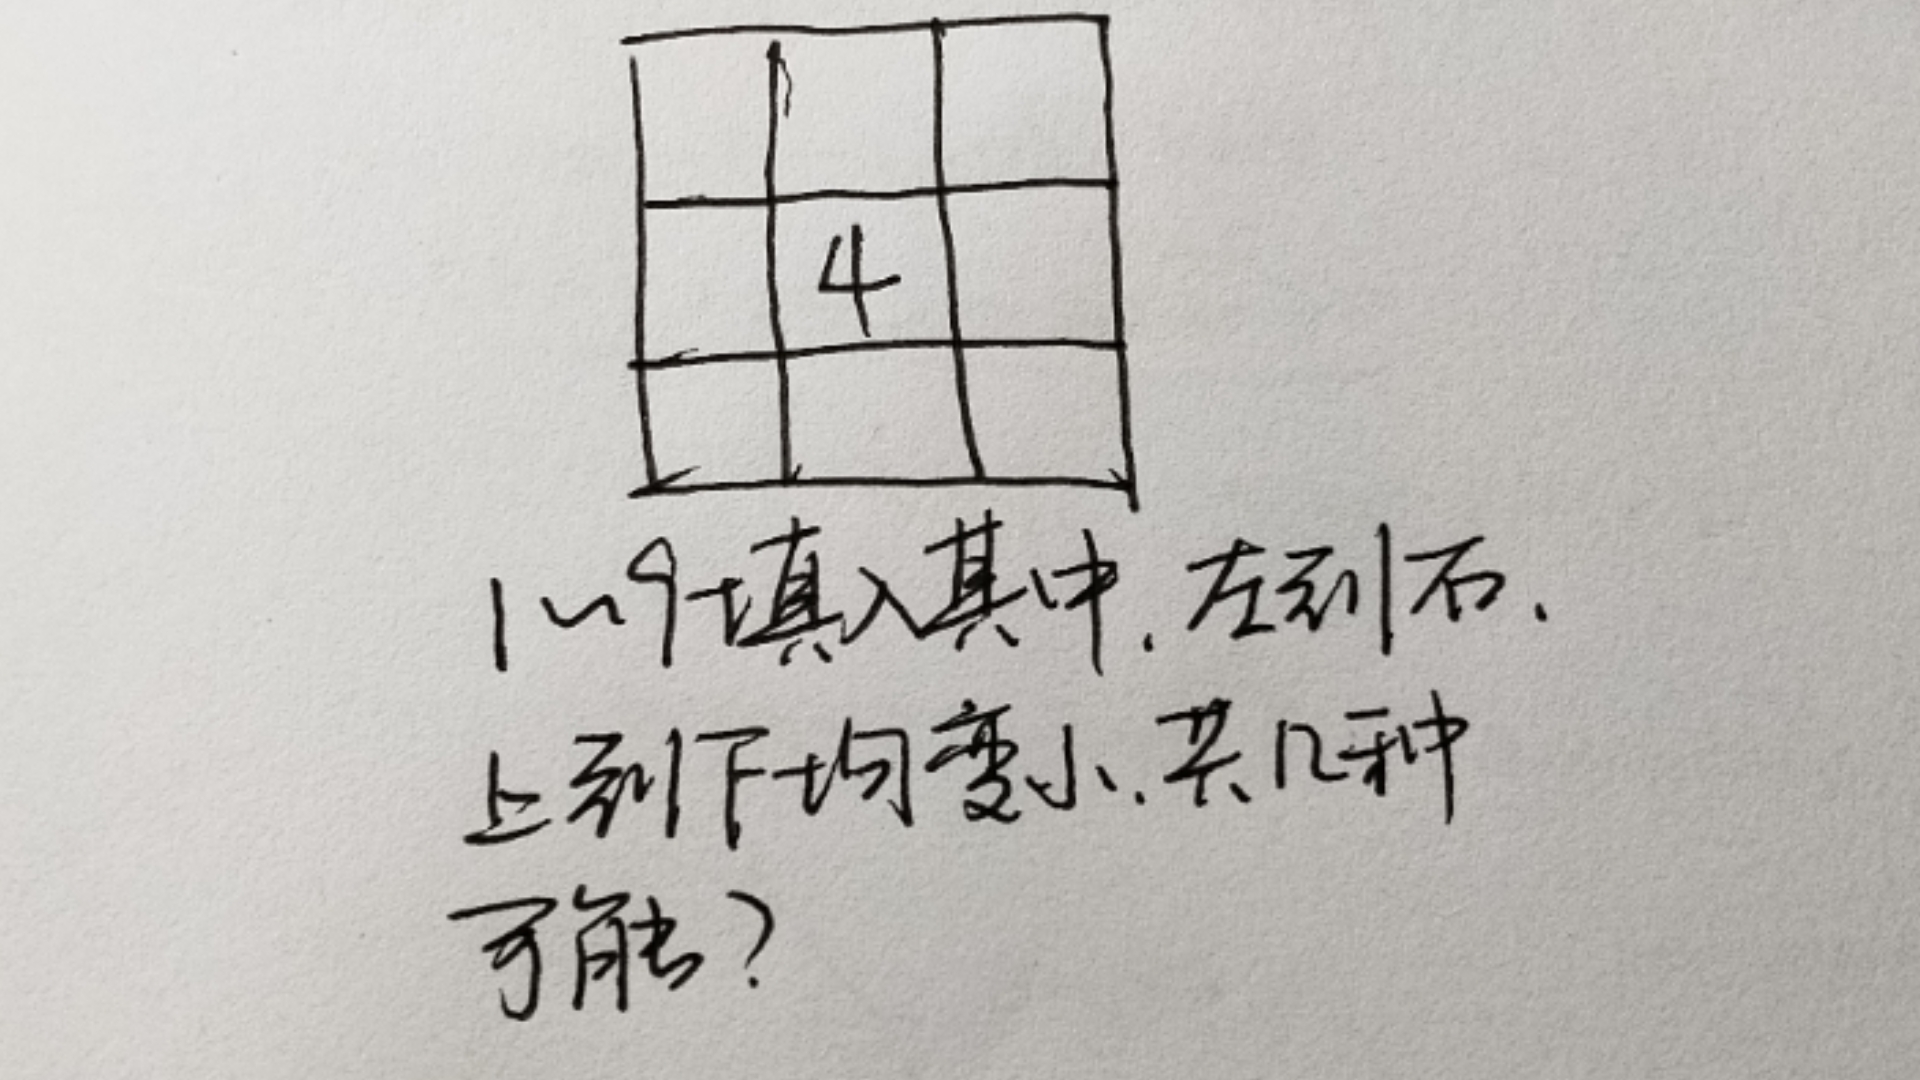 4
1~9填入其中.左到右.
上到下均变小.共几种
可能?